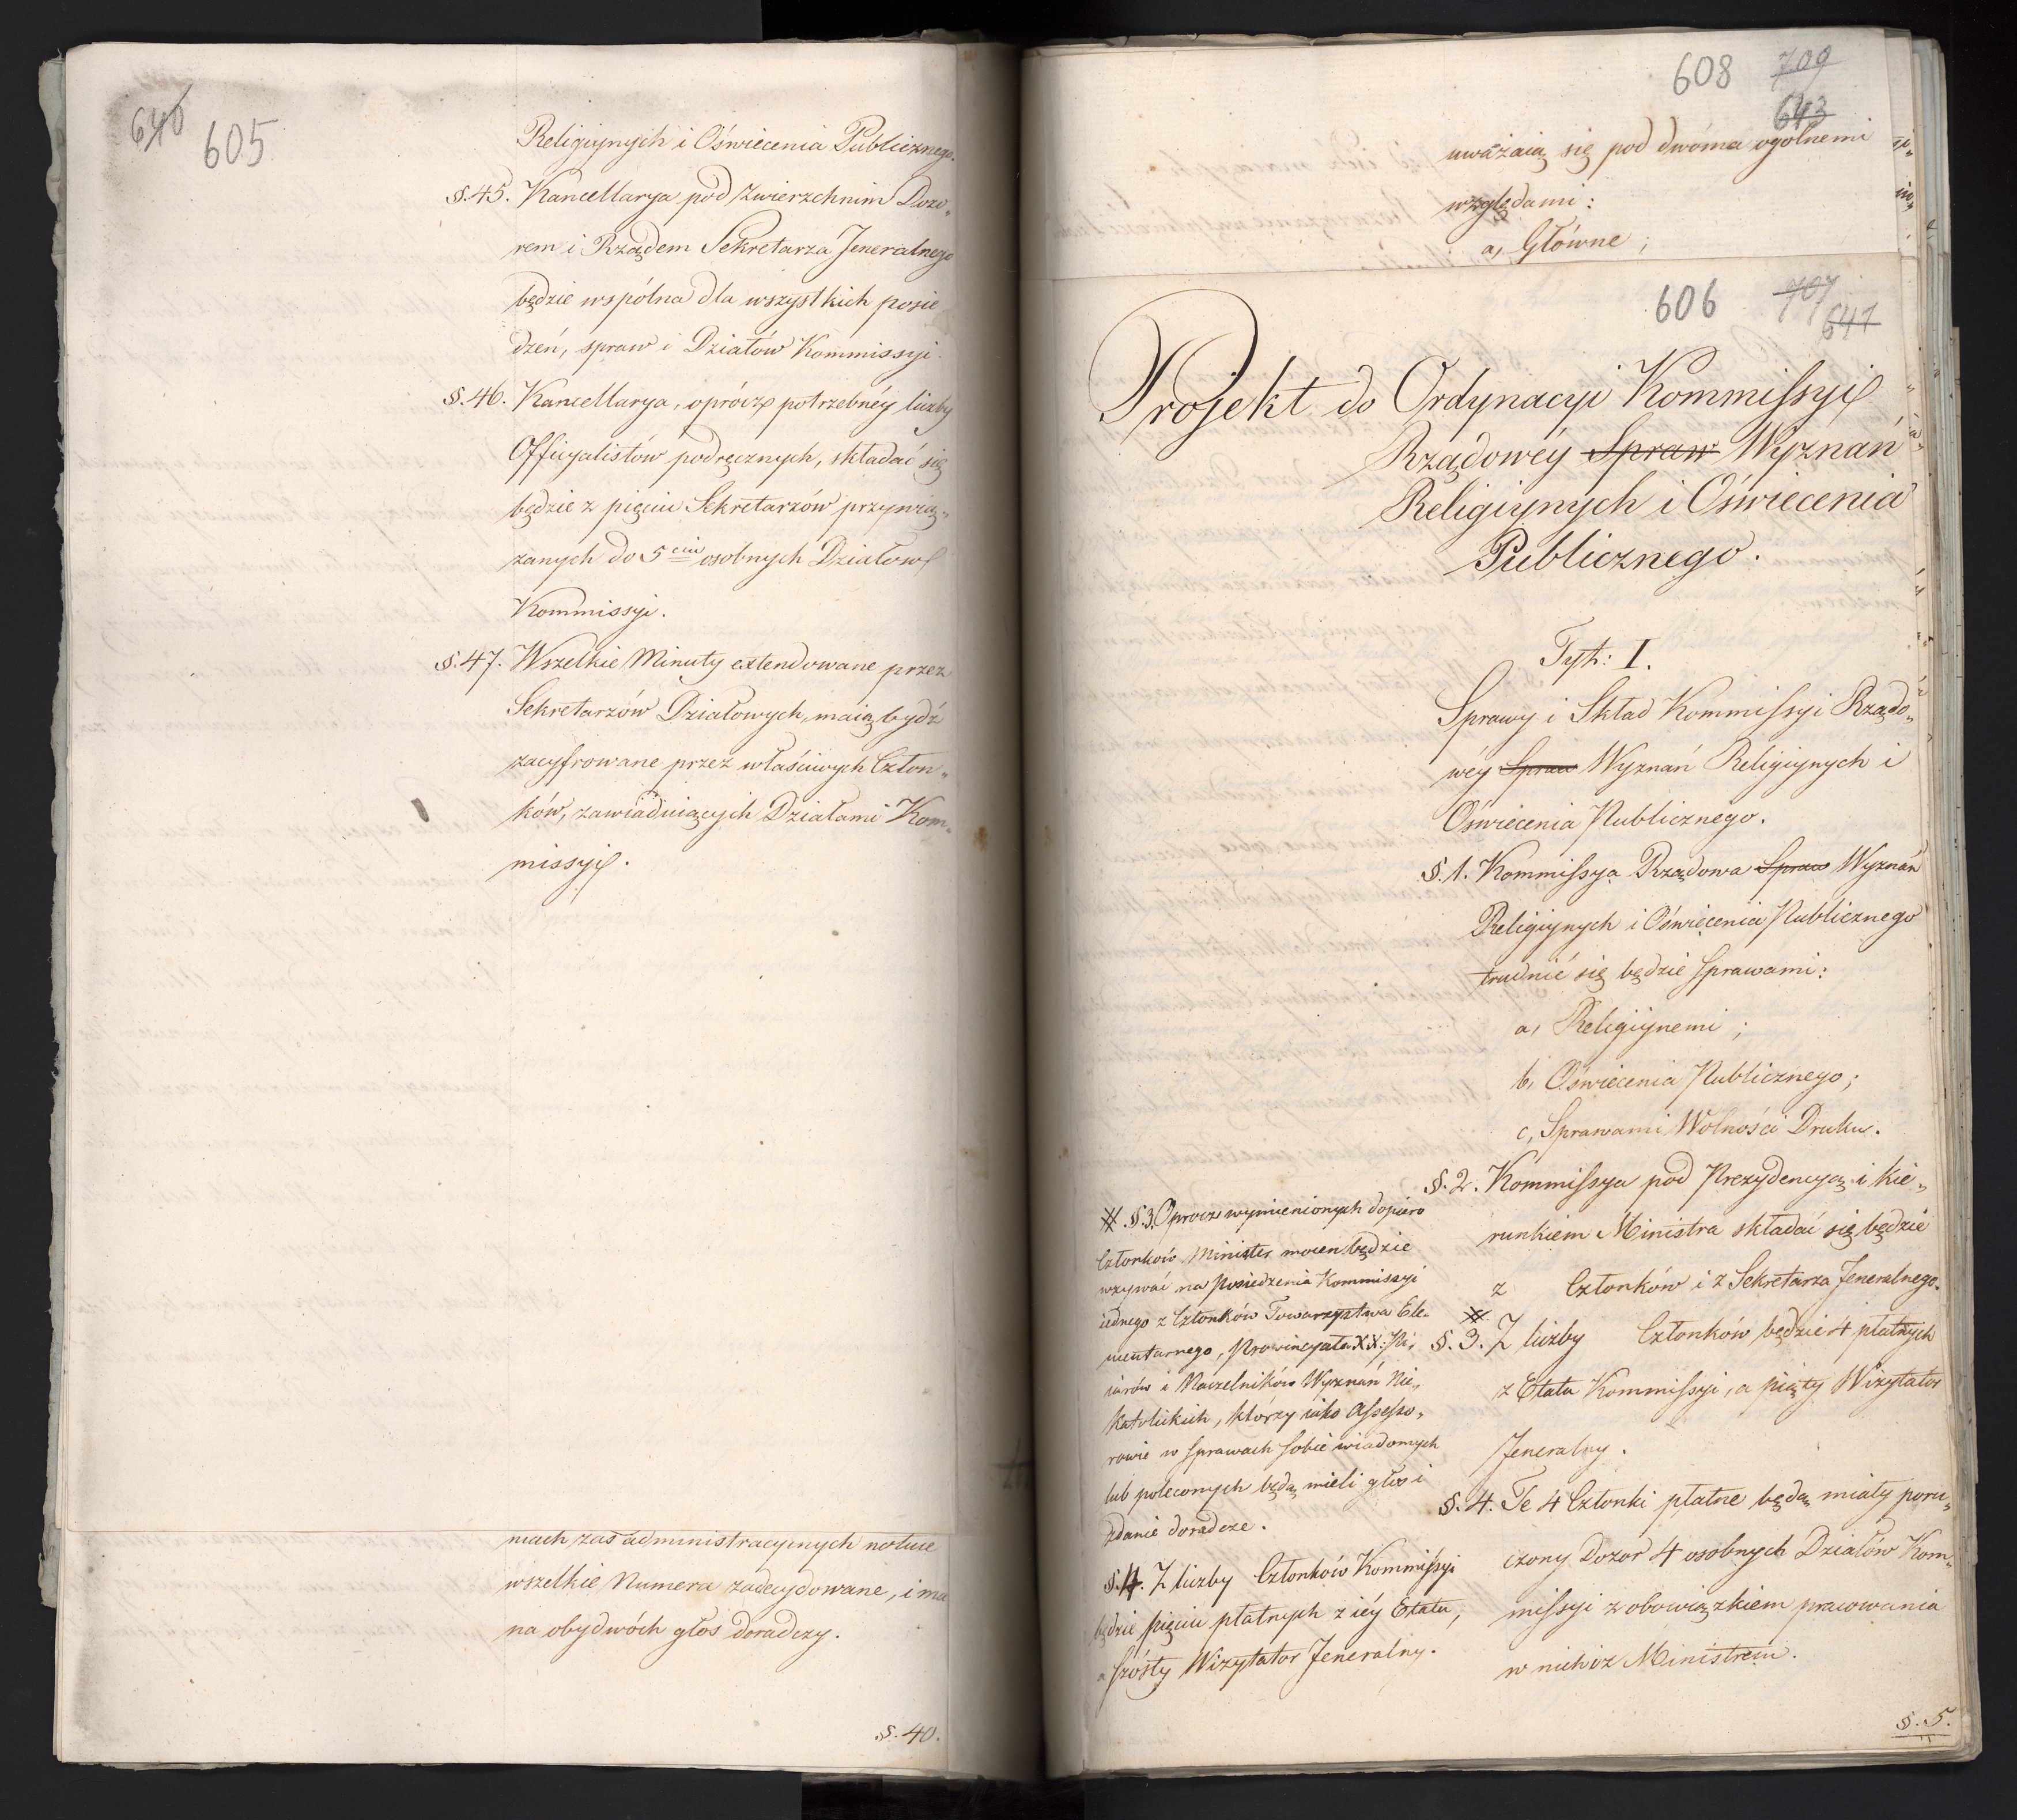 640 605
Religiynych i Oświecenia Publicznego.
§. 45. Kancellarya pod zwierzchnim Dozo„
rem i Rządem Sekretarza Jeneralnego
będzie wspólna dla wszystkich posie
dzeń, spraw i Działów Kommissyi.
§. 46. Kancellarya, oprócz potrzebnéy liczby
Officyalistów podręcznych, składać się
będzie z pięciu Sekretarzów przywią„
zanych do 5ciu osobnych Działów
Kommissyi.
§. 47. Wszelkie Minuty extendowane przez
Sekretarzów Działowych, maią bydź
zacyfrowane przez właściwych Człon„
ków, zawiaduiących Działami Kom„
missyi.
mach zaś administracyinych notuie
wszelkie Numera zadecydowane, i ma
na obydwóch głos doradczy.
§. 40.
608 709
643
uważaią się pod dwóma ogolnemi
względami:
a, Główne;
606 707
641
Projekt do Ordynacyi Kommissyi
Rządowéy Spraw Wyznań
Religiynych i Oświecenia
Publicznego.
Tyt: I.
Sprawy i Skład Kommissyi Rządo„
wéy Spraw Wyznań Religiynych i
Oświecenia Publicznego.
§. 1. Kommissya Rządowa Spraw Wyznań
Religiynych i Oświecenia Publicznego
trudnić się będzie sprawami:
a, Religiynemi;
b, Oświecenia Publicznego;
c, Sprawami Wolności Druku.
§. 2. Kommissya pod Prezydencyą i kie„
runkiem Ministra składać się będzie
z Członków i z Sekretarza Jeneralnego.
§. 3. Z liczby Członków będzie 4 płatnych
z Etatu Kommissyi, a piąty Wizytator
Jeneralny.
§. 4. Te 4 Członki płatne będą miały poru„
czony Dozor 4 osobnych Działów Kom„
missyi z obowiązkiem pracowania
w nich z Ministrem.
§. 5.
§ 3. Oprocz wymienionych dopiero
Członków Minister mocen będzie
wzywać na Posiedzenia Kommissyi
iednego z Członków Towarzystwa Ele„
mentarnego, Prowincyała XX: Pi„
iarów i Naczelników Wyznań Nie„
katolickich, którzy iako Assesso„
rowie w sprawach sobie wiadomych
lub poleconych będą mieli głos i
zdanie doradcze.
§. 4. Z liczby Członków Kommissyi
będzie pięciu płatnych z iéy Etatu,
a szósty Wizytator Jeneralny.